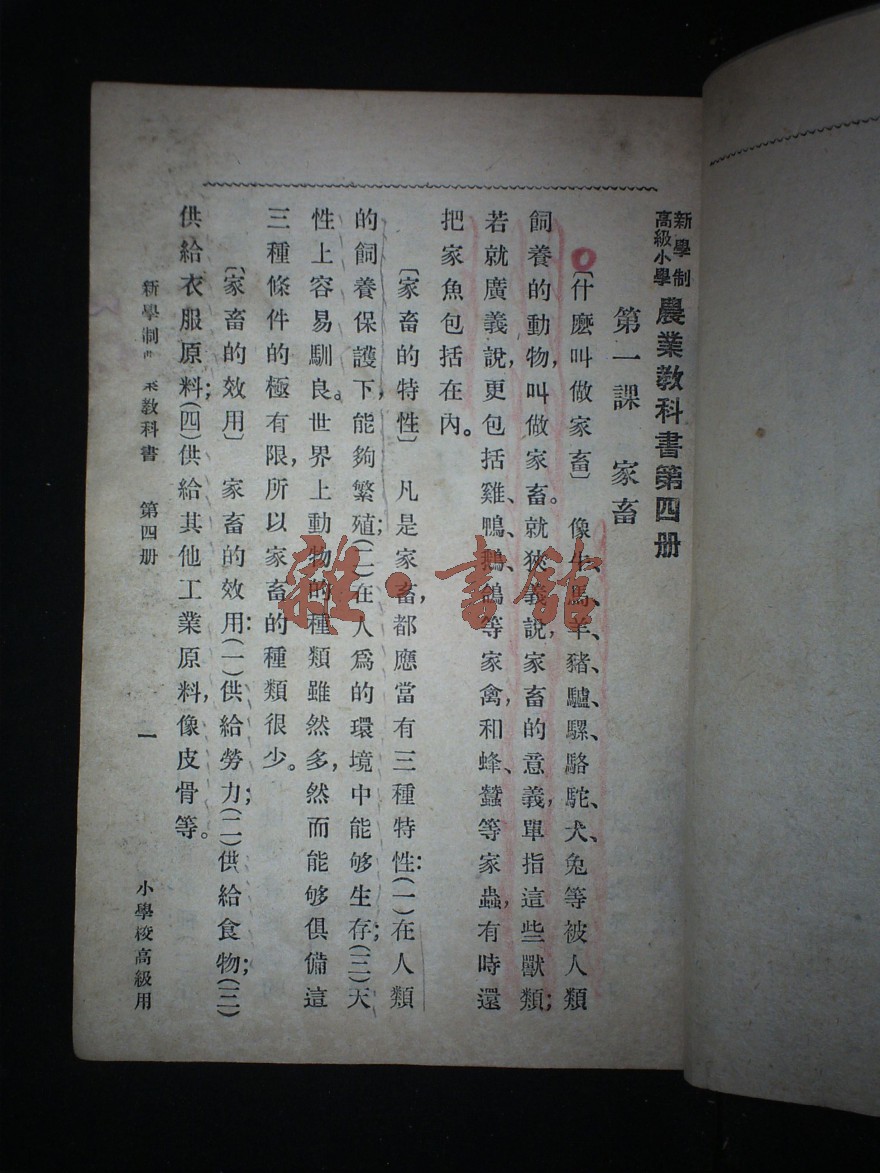 新學制
高級小學
農業教科書第四册
第一課　家畜
〔什麼叫做家畜〕　像牛、馬、羊、豬、驢、騾、駱駝、犬、兔等被人類
飼養的動物，叫做家畜。就狹義說，家畜的意義，單指這些獸類；
若就廣義說，更包括雞、鴨、鵝、鴿等家禽，和蜂、蠶等家蟲，有時還
把家魚包括在內。
〔家畜的特性〕　凡是家畜，都應當有三種特性：(一)在人類
的飼養保護下，能夠繁殖；(二)在人爲的環境中能够生存；(三)天
性上容易馴良。世界上動物的種類雖然多，然而能够俱備這
三種條件的極有限，所以家畜的種類很少。
〔家畜的效用〕　家畜的效用：(一)供給勞力；(二)供給食物；(三)
供給衣服原料；(四)供給其他工業原料，像皮骨等。
新學制 業教科書　第四册　一　小學校高級用
雜·書館